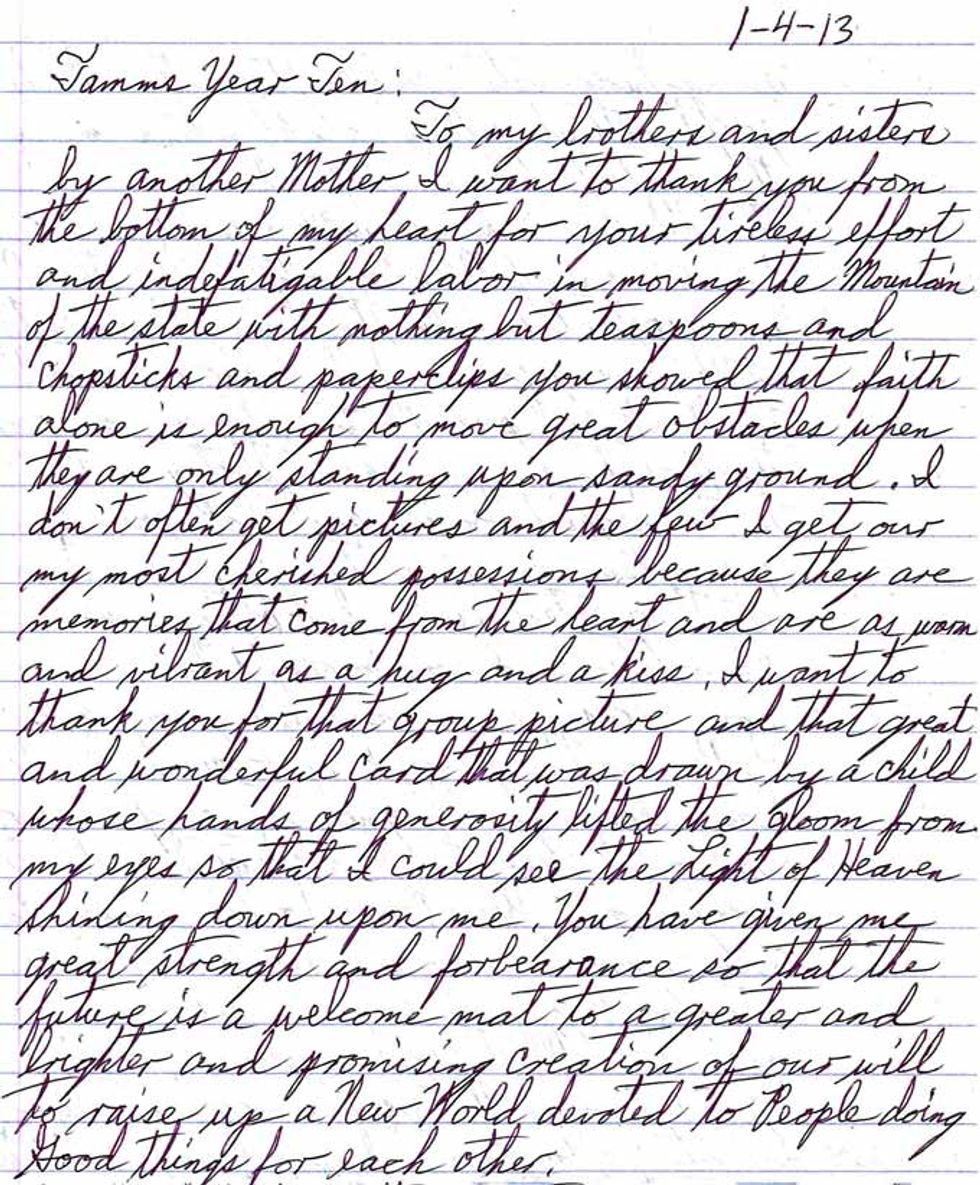 1-4-13
Tamms Year Ten:
To my brothers and sisters
by another Mother I want to thank you from
the bottom of my heart for your tireless effort
and indefatigable labor in moving the Mountain
of the state with nothing but teaspoons and
chopsticks and paperclips you showed that faith
alone is enough to move great obstacles when
they are only standing upon sandy ground. I
don't often get pictures and the few I get our
my most cherished possessions because they are
memories that come from the heart and are as warm
and vibrant as a hug and a kiss. I want to
thank you for that group picture and that great
and wonderful card that was drawn by a child
whose hands of generosity lifted the gloom from
my eyes so that I could see the Light of Heaven
shining down upon me. You have given me
great strength and forbearance so that the
future is a welcome mat to a greater and
brighter and promising creation of our will
to raise up a New World devoted to People doing
Good things for each other.